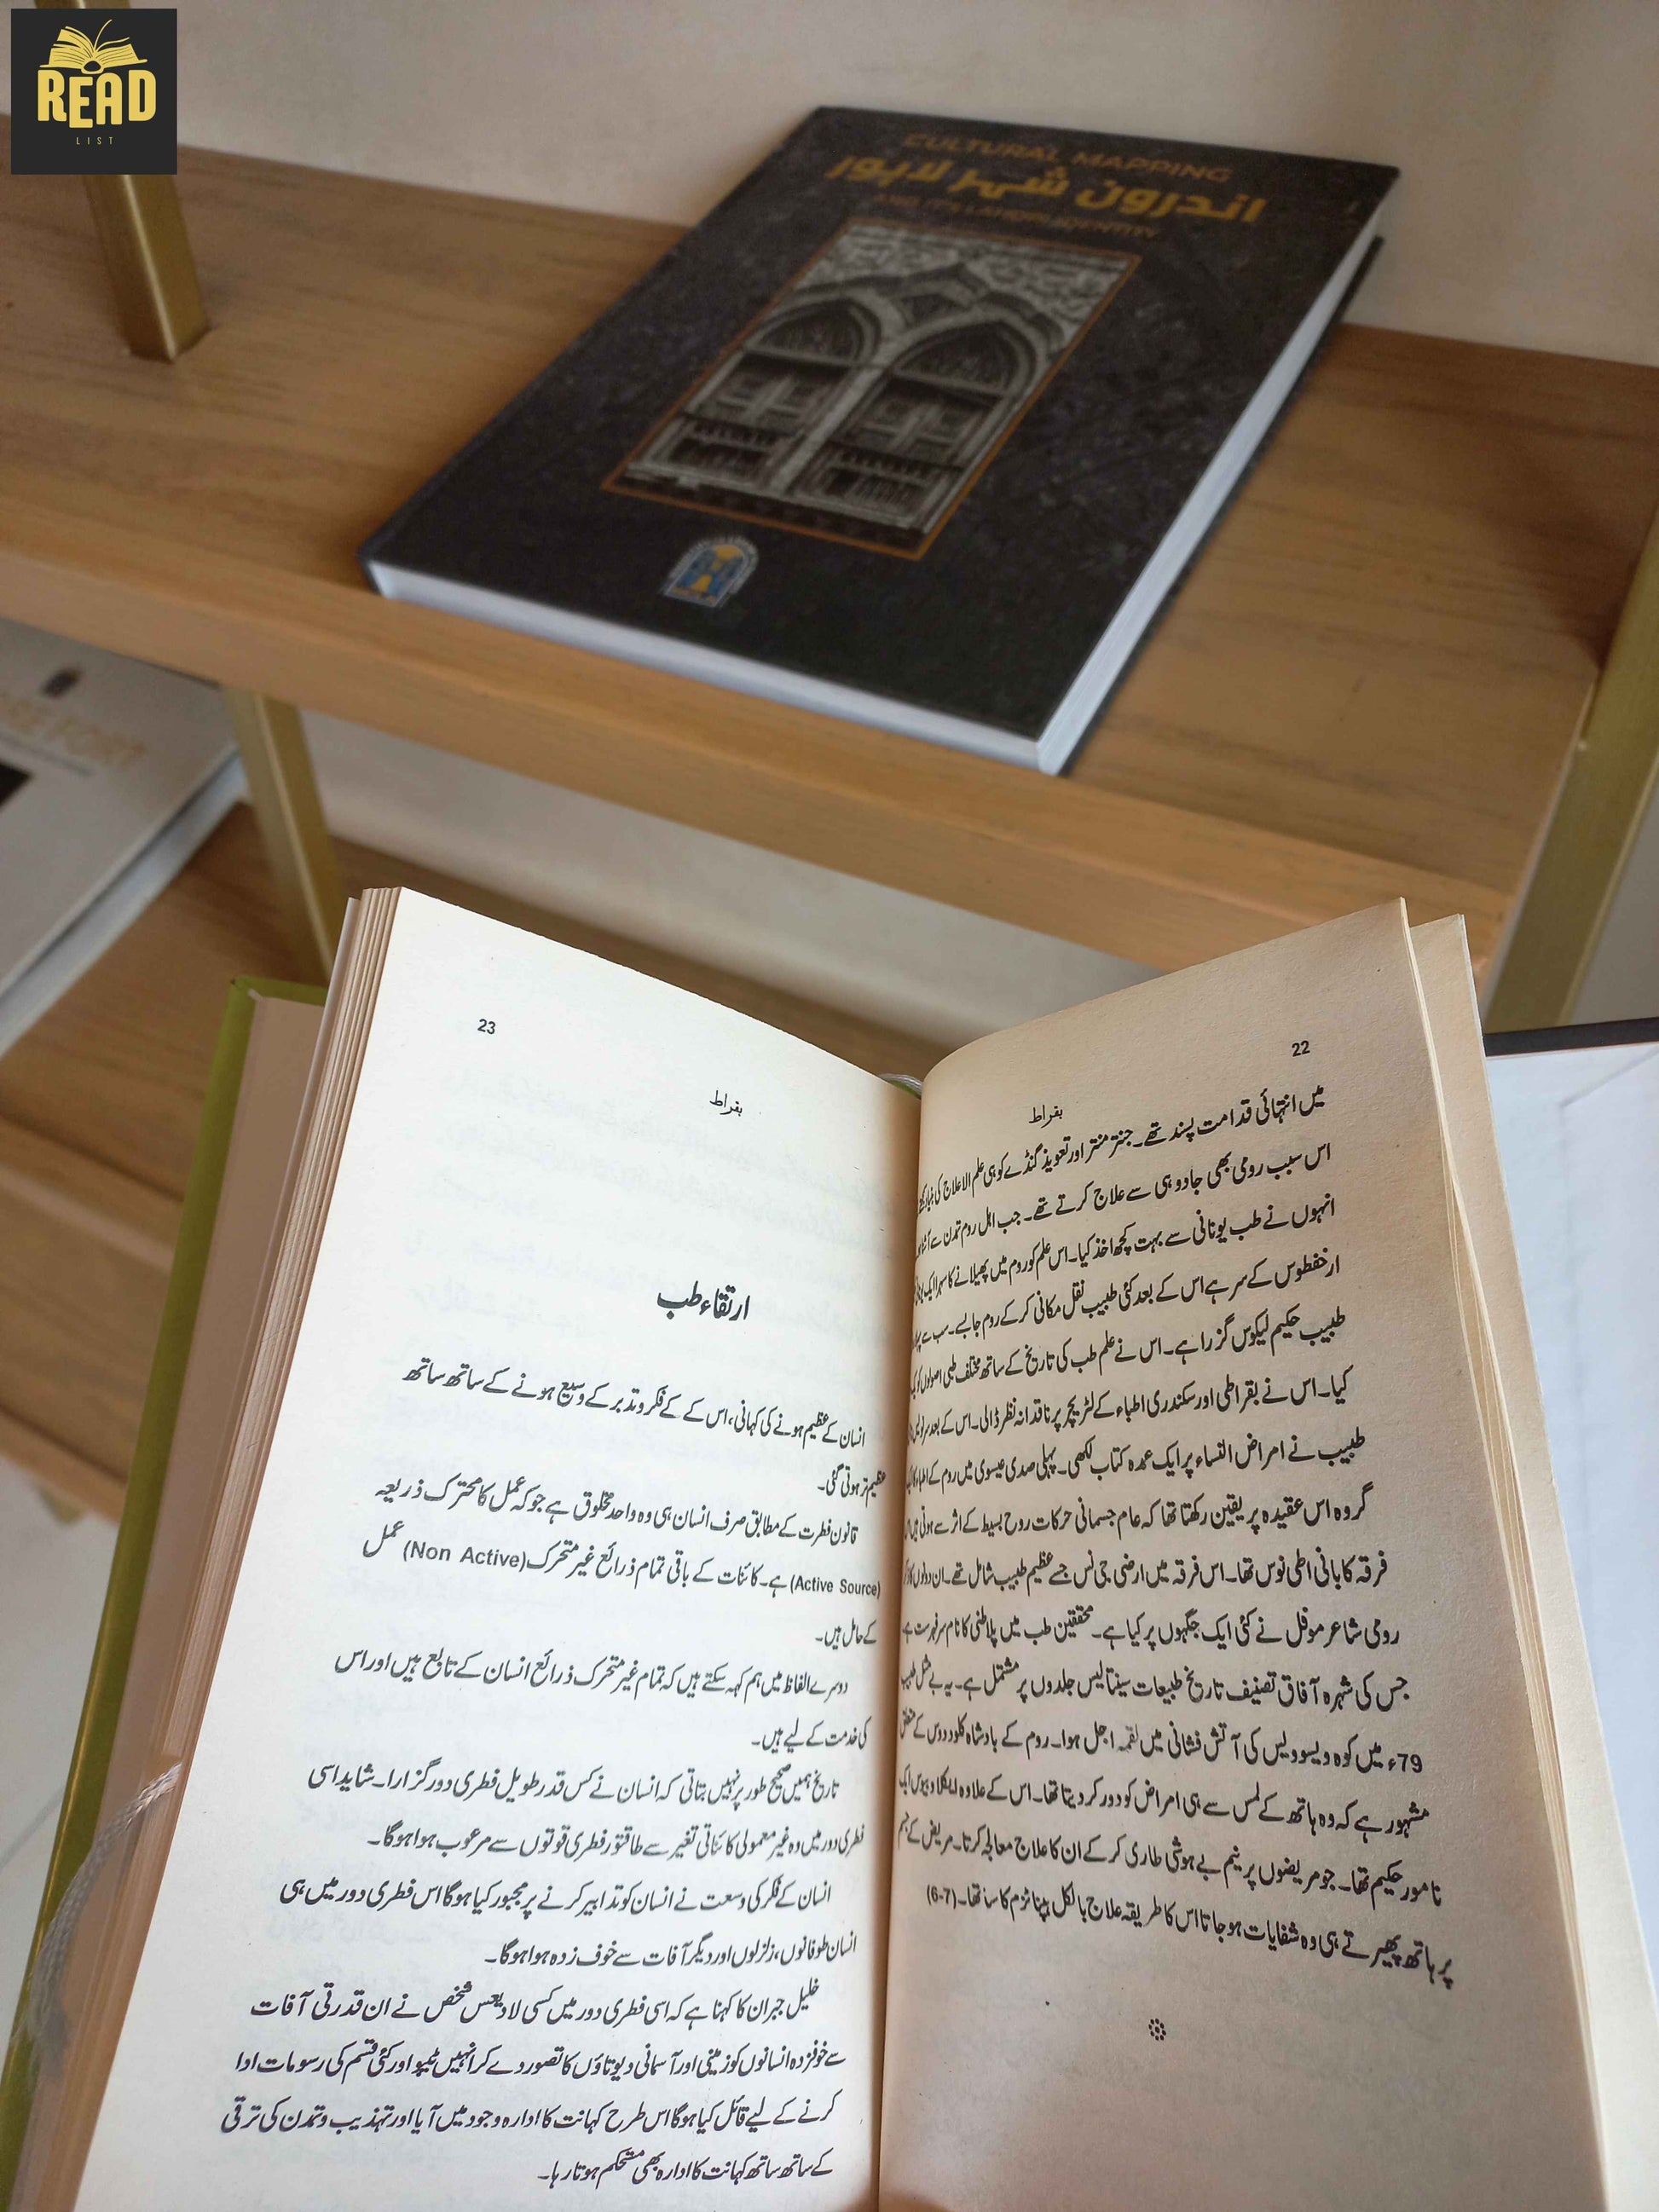 READ
LIST
CULTURAL MAPPING
اندرون شہر لاہور
AND ITS LAHORI IDENTITY
22
بقراط
میں انتہائی قدامت پسند تھے۔ جنتر منتر اور تعویذ گنڈے کو ہی علم الاعلاج کی
اس سبب رومی بھی جادو ہی سے علاج کرتے تھے۔ جب اہل روم تمدن سے آشنا
انہوں نے طب یونانی سے بہت کچھ اخذ کیا۔ اس علم کو روم میں پھیلانے کا سہرا ایک
ارخفطوس کے سر ہے اس کے بعد کئی طبیب نقل مکانی کر کے روم جا بسے۔ سب سے
طبیب حکیم لیکوس گزرا ہے۔ اس نے علم طب کی تاریخ کے ساتھ مختلف طبی اصولوں کو
کیا۔ اس نے بقراطی اور سکندری اطباء کے لٹریچر پر ناقدانہ نظر ڈالی۔ اس کے بعد
طبیب نے امراض النساء پر ایک عمدہ کتاب لکھی۔ پہلی صدی عیسوی میں روم کے اطباء کا
گروہ اس عقیدہ پر یقین رکھتا تھا کہ عام جسمانی حرکات روح بسیط کے اثر سے ہوتی ہیں
فرقہ کا بانی اطی نوس تھا۔ اس فرقہ میں ارضی جی نس جسے عظیم طبیب شامل تھے۔ ان دونوں کا ذکر
رومی شاعر موفل نے کئی ایک جگہوں پر کیا ہے۔ محققین طب میں پلاطنی کا نام سرفہرست ہے
جس کی شہرہ آفاق تصنیف تاریخ طبیعات سینتالیس جلدوں پر مشتمل ہے۔ یہ بے مثل طبیب
79ء میں کوہ ویسوویس کی آتش فشانی میں لقمہ اجل ہوا۔ روم کے بادشاہ کلوددوس کے متعلق
مشہور ہے کہ وہ ہاتھ کے لمس سے ہی امراض کو دور کر دیتا تھا۔ اس کے علاوہ ایک
نامور حکیم تھا۔ جو مریضوں پر نیم بے ہوشی طاری کر کے ان کا علاج معالجہ کرتا۔ مریض کے جسم
پر ہاتھ پھیرتے ہی وہ شفایات ہو جاتا اس کا طریقہ علاج بالکل ہپناٹزم کا سا تھا۔ (6-7)
23
بقراط
ارتقاء طب
انسان کے عظیم ہونے کی کہانی، اس کے کے فکر و تدبر کے وسیع ہونے کے ساتھ ساتھ
عظیم تر ہوتی گئی۔
قانون فطرت کے مطابق صرف انسان ہی وہ واحد مخلوق ہے جو کہ عمل کا محترک ذریعہ
(Active Source) ہے۔ کائنات کے باقی تمام ذرائع غیر متحرک (Non Active) عمل
کے حامل ہیں۔
دوسرے الفاظ میں ہم کہہ سکتے ہیں کہ تمام غیر متحرک ذرائع انسان کے تابع ہیں اور اس
کی خدمت کے لیے ہیں۔
تاریخ ہمیں صحیح طور پر نہیں بتاتی کہ انسان نے کس قدر طویل فطری دور گزارا۔ شاید اسی
فطری دور میں وہ غیر معمولی کائناتی تغیر سے طاقتور فطری قوتوں سے مرعوب ہوا ہوگا۔
انسان کے فکر کی وسعت نے انسان کو تدابیر کرنے پر مجبور کیا ہوگا اس فطری دور میں ہی
انسان طوفانوں، زلزلوں اور دیگر آفات سے خوف زدہ ہوا ہوگا۔
خلیل جبران کا کہنا ہے کہ اسی فطری دور میں کسی لادیعس شخص نے ان قدرتی آفات
سے خوفزدہ انسانوں کو زمینی اور آسمانی دیوتاؤں کا تصور دے کر انہیں ٹیپو اور کئی قسم کی رسومات ادا
کرنے کے لیے قائل کیا ہوگا اس طرح کہانت کا ادارہ وجود میں آیا اور تہذیب و تمدن کی ترقی
کے ساتھ ساتھ کہانت کا ادارہ بھی مستحکم ہوتا رہا۔